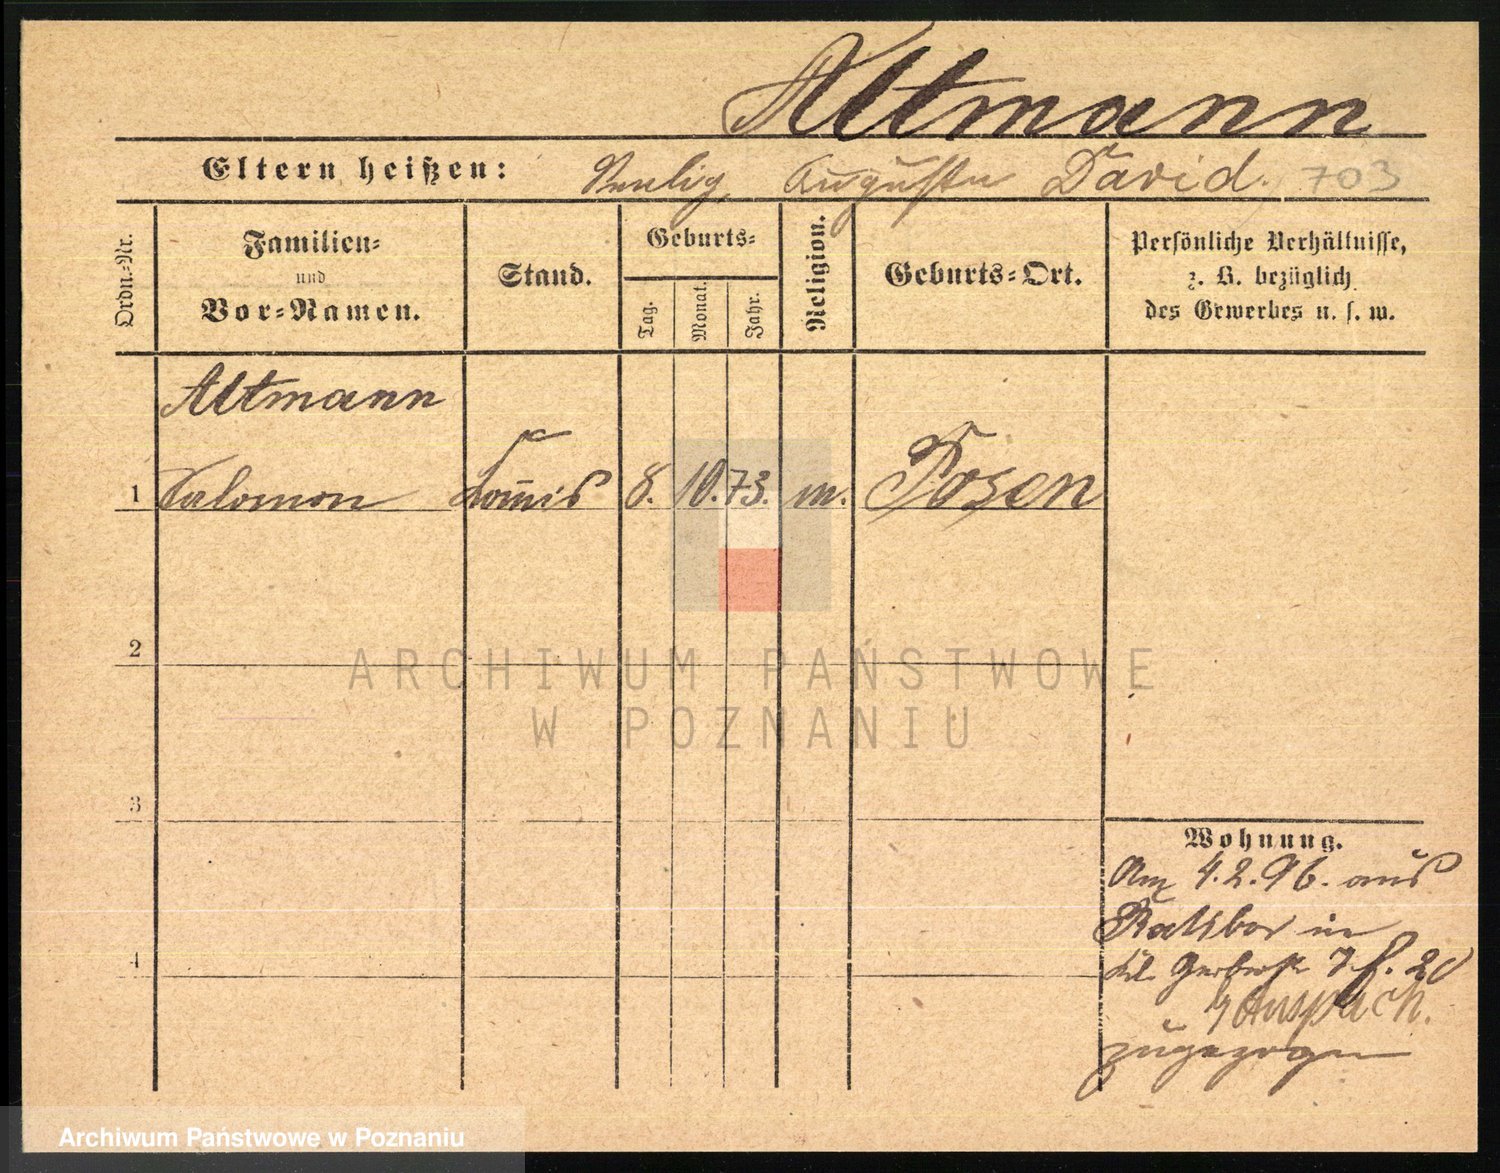 Altmann
Eltern heißen: Auguste David. 703
Ordn.-Nr.
Familien-
und
Vor-Namen.
Stand.
Geburts-
Tag.
Monat.
Jahr.
Religion.
Geburts-Ort.
Persönliche Verhältnisse,
z. B. bezüglich
des Gewerbes u. s. w.
Altmann
1 Salomon Kom̅is 8. 10. 73. m. Posen
2
3
4
Wohnung.
Am 4.2.96. aus
Ratibor in
kl. Gerberstr 7 f. 20
zugezogen
ARCHIWUM PAŃSTWOWE
W POZNANIU
Archiwum Państwowe w Poznaniu